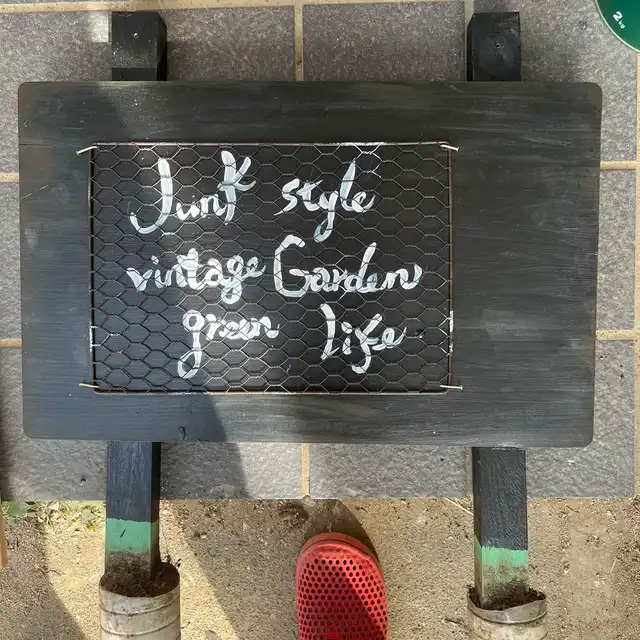 Junk style
vintage Garden
green life
2